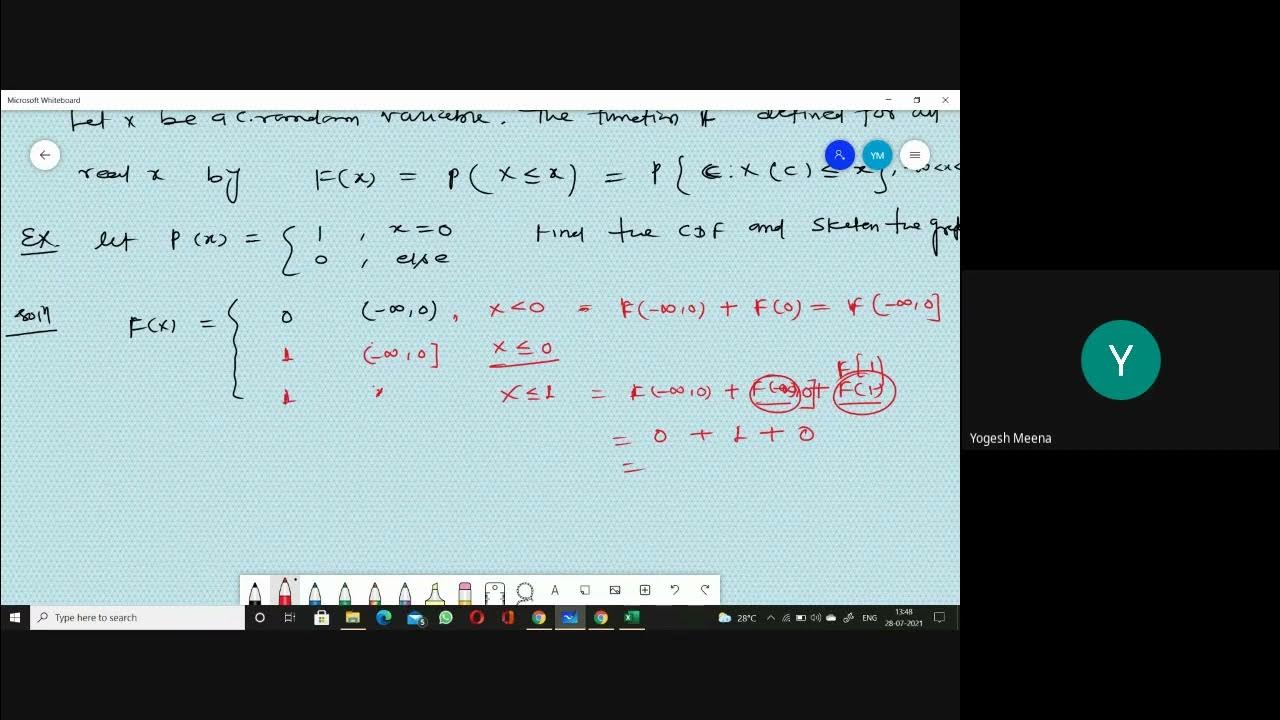 Microsoft Whiteboard
Let X be a C. random variable. The function F defined for all
real x by F(x) = P(X ≤ x) = P{C : X(C) ≤ x}, -∞<x<
YM
EX. let P(x) = { 1 , x = 0 Find the CDF and sketch the grap
0 , else
soln F(x) = { 0 (-∞, 0), x < 0 = F(-∞, 0) + F(0) = F(-∞, 0]
1 (-∞, 0] x ≤ 0
F[1)
1 x ≤ 1 = F(-∞, 0) + F(-∞, 0] + F(1)
= 0 + 1 + 0
=
Y
Yogesh Meena
Type here to search
5
28°C
ENG
13:48
28-07-2021